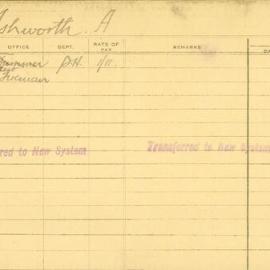 shworth. A
OFFICE DEPT. RATE OF PAY REMARKS DA
P.H. 1/11.
Foreman
red to New System Transferred to New System